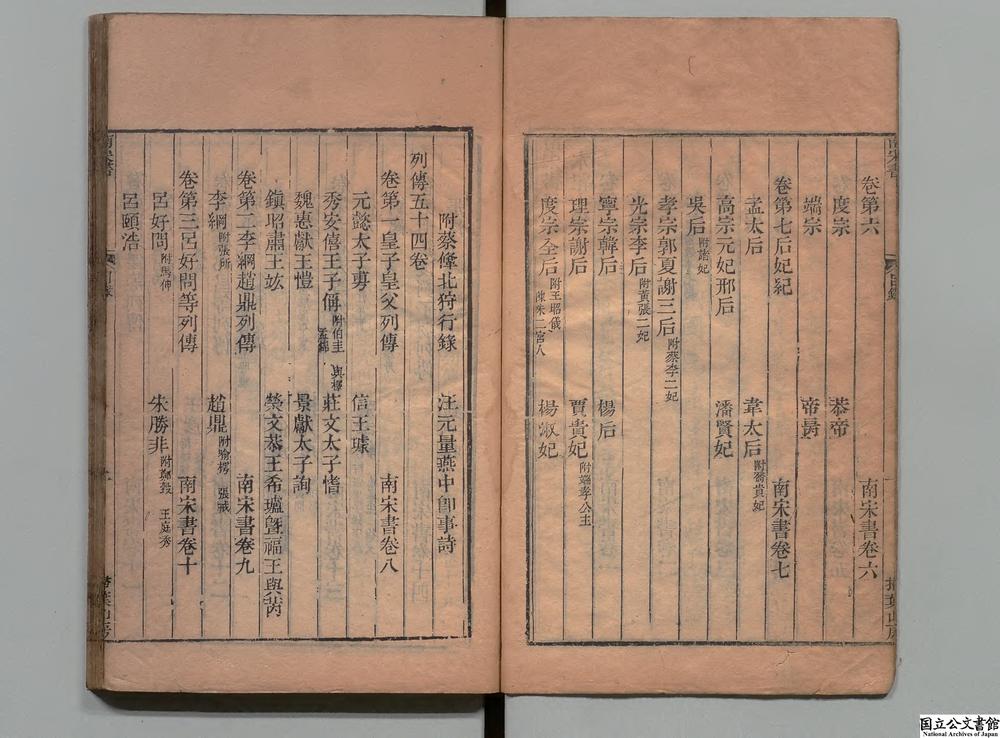 卷第六 南宋書卷六
度宗 恭帝
端宗 帝昺
卷第七后妃紀 南宋書卷七
孟太后 韋太后附喬貴妃
高宗元妃邢后 潘賢妃
吳后附諸妃
孝宗郭夏謝三后附蔡李二妃
光宗李后附黃張二妃
寧宗韓后 楊后
理宗謝后 賈貴妃附端孝公主
度宗全后附王昭儀陳朱二宮人 楊淑妃
附蔡絛北狩行錄 汪元量燕中卽事詩
列傳五十四卷
卷第一皇子皇父列傳 南宋書卷八
元懿太子旉 信王璩
秀安僖王子偁附伯圭孟錦與檡 莊文太子愭
魏惠獻王愷 景獻太子詢
鎮昭肅王竑 榮文恭王希瓐曁福王與芮
卷第二李綱趙鼎列傳 南宋書卷九
李綱附張所 趙鼎附喻樗 張戒
卷第三呂好問等列傳 南宋書卷十
呂好問附馬伸 朱勝非附鄭瑴 王庭秀
呂頤浩
南宋書 目錄 掃葉山房
国立公文書館
National Archives of Japan